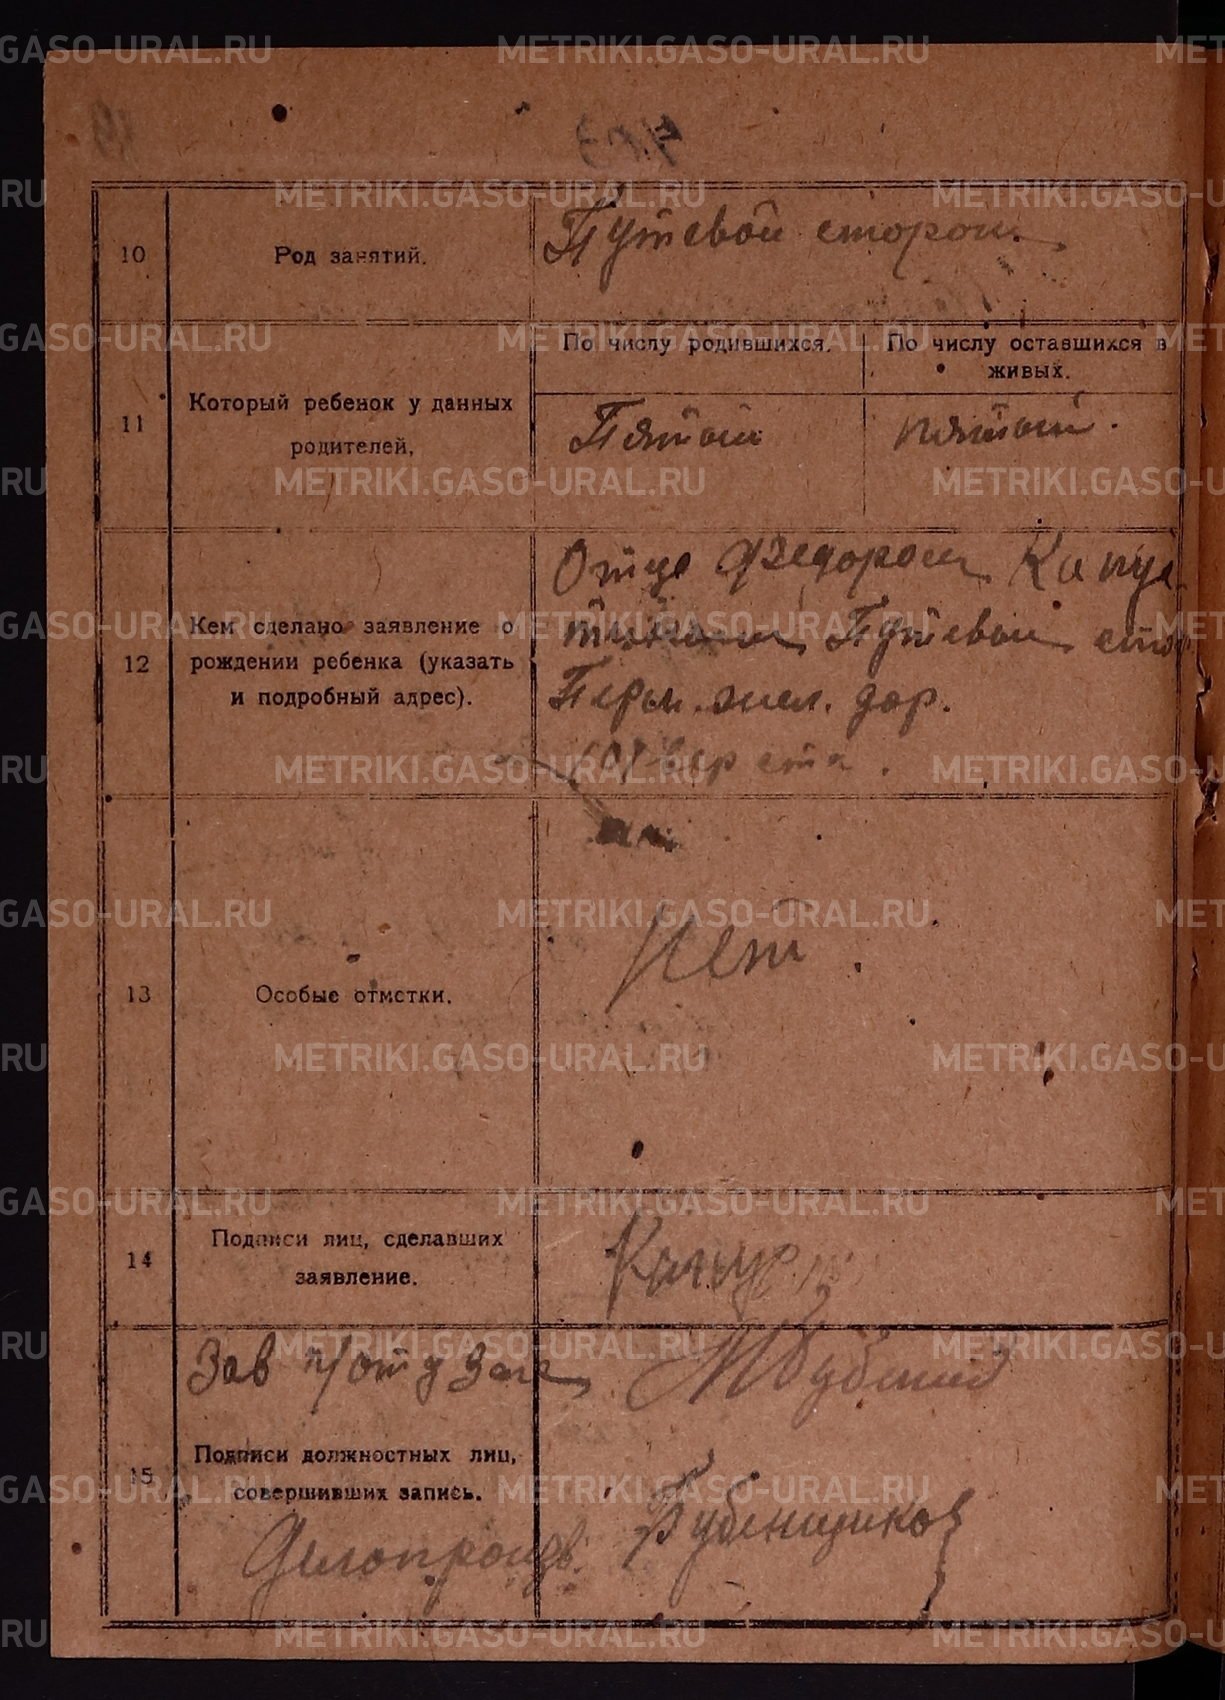 10
Род занятий.
Путевой сторож.
11
Который ребенок у данных
родителей,
По числу родившихся.
По числу оставшихся в
живых.
Пятый
пятый.
12
Кем сделано заявление о
рождении ребенка (указать
и подробный адрес).
Отцо Федором Капус
тиным Путевым сто
Перм. жел. дор.
верста.
13
Особые отметки.
Нет.
14
Подписи лиц, сделавших
заявление.
Капус
Зав п/отд Загс
15
Подписи должностных лиц,
совершивших запись.
Делопроизв.
Бубенщиков
METRIKI.GASO-URAL.RU